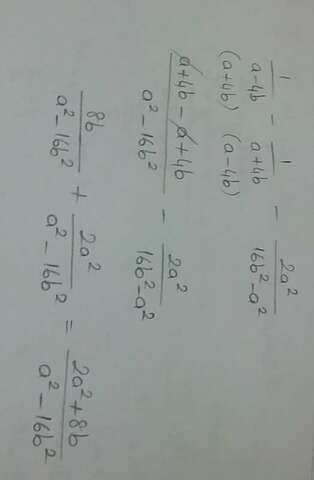 1/(a-4b) - 1/(a+4b) - 2a²/(16b²-a²)
(a+4b) (a-4b)
(a+4b-a+4b)/(a²-16b²) - 2a²/(16b²-a²)
8b/(a²-16b²) + 2a²/(a²-16b²) = (2a²+8b)/(a²-16b²)